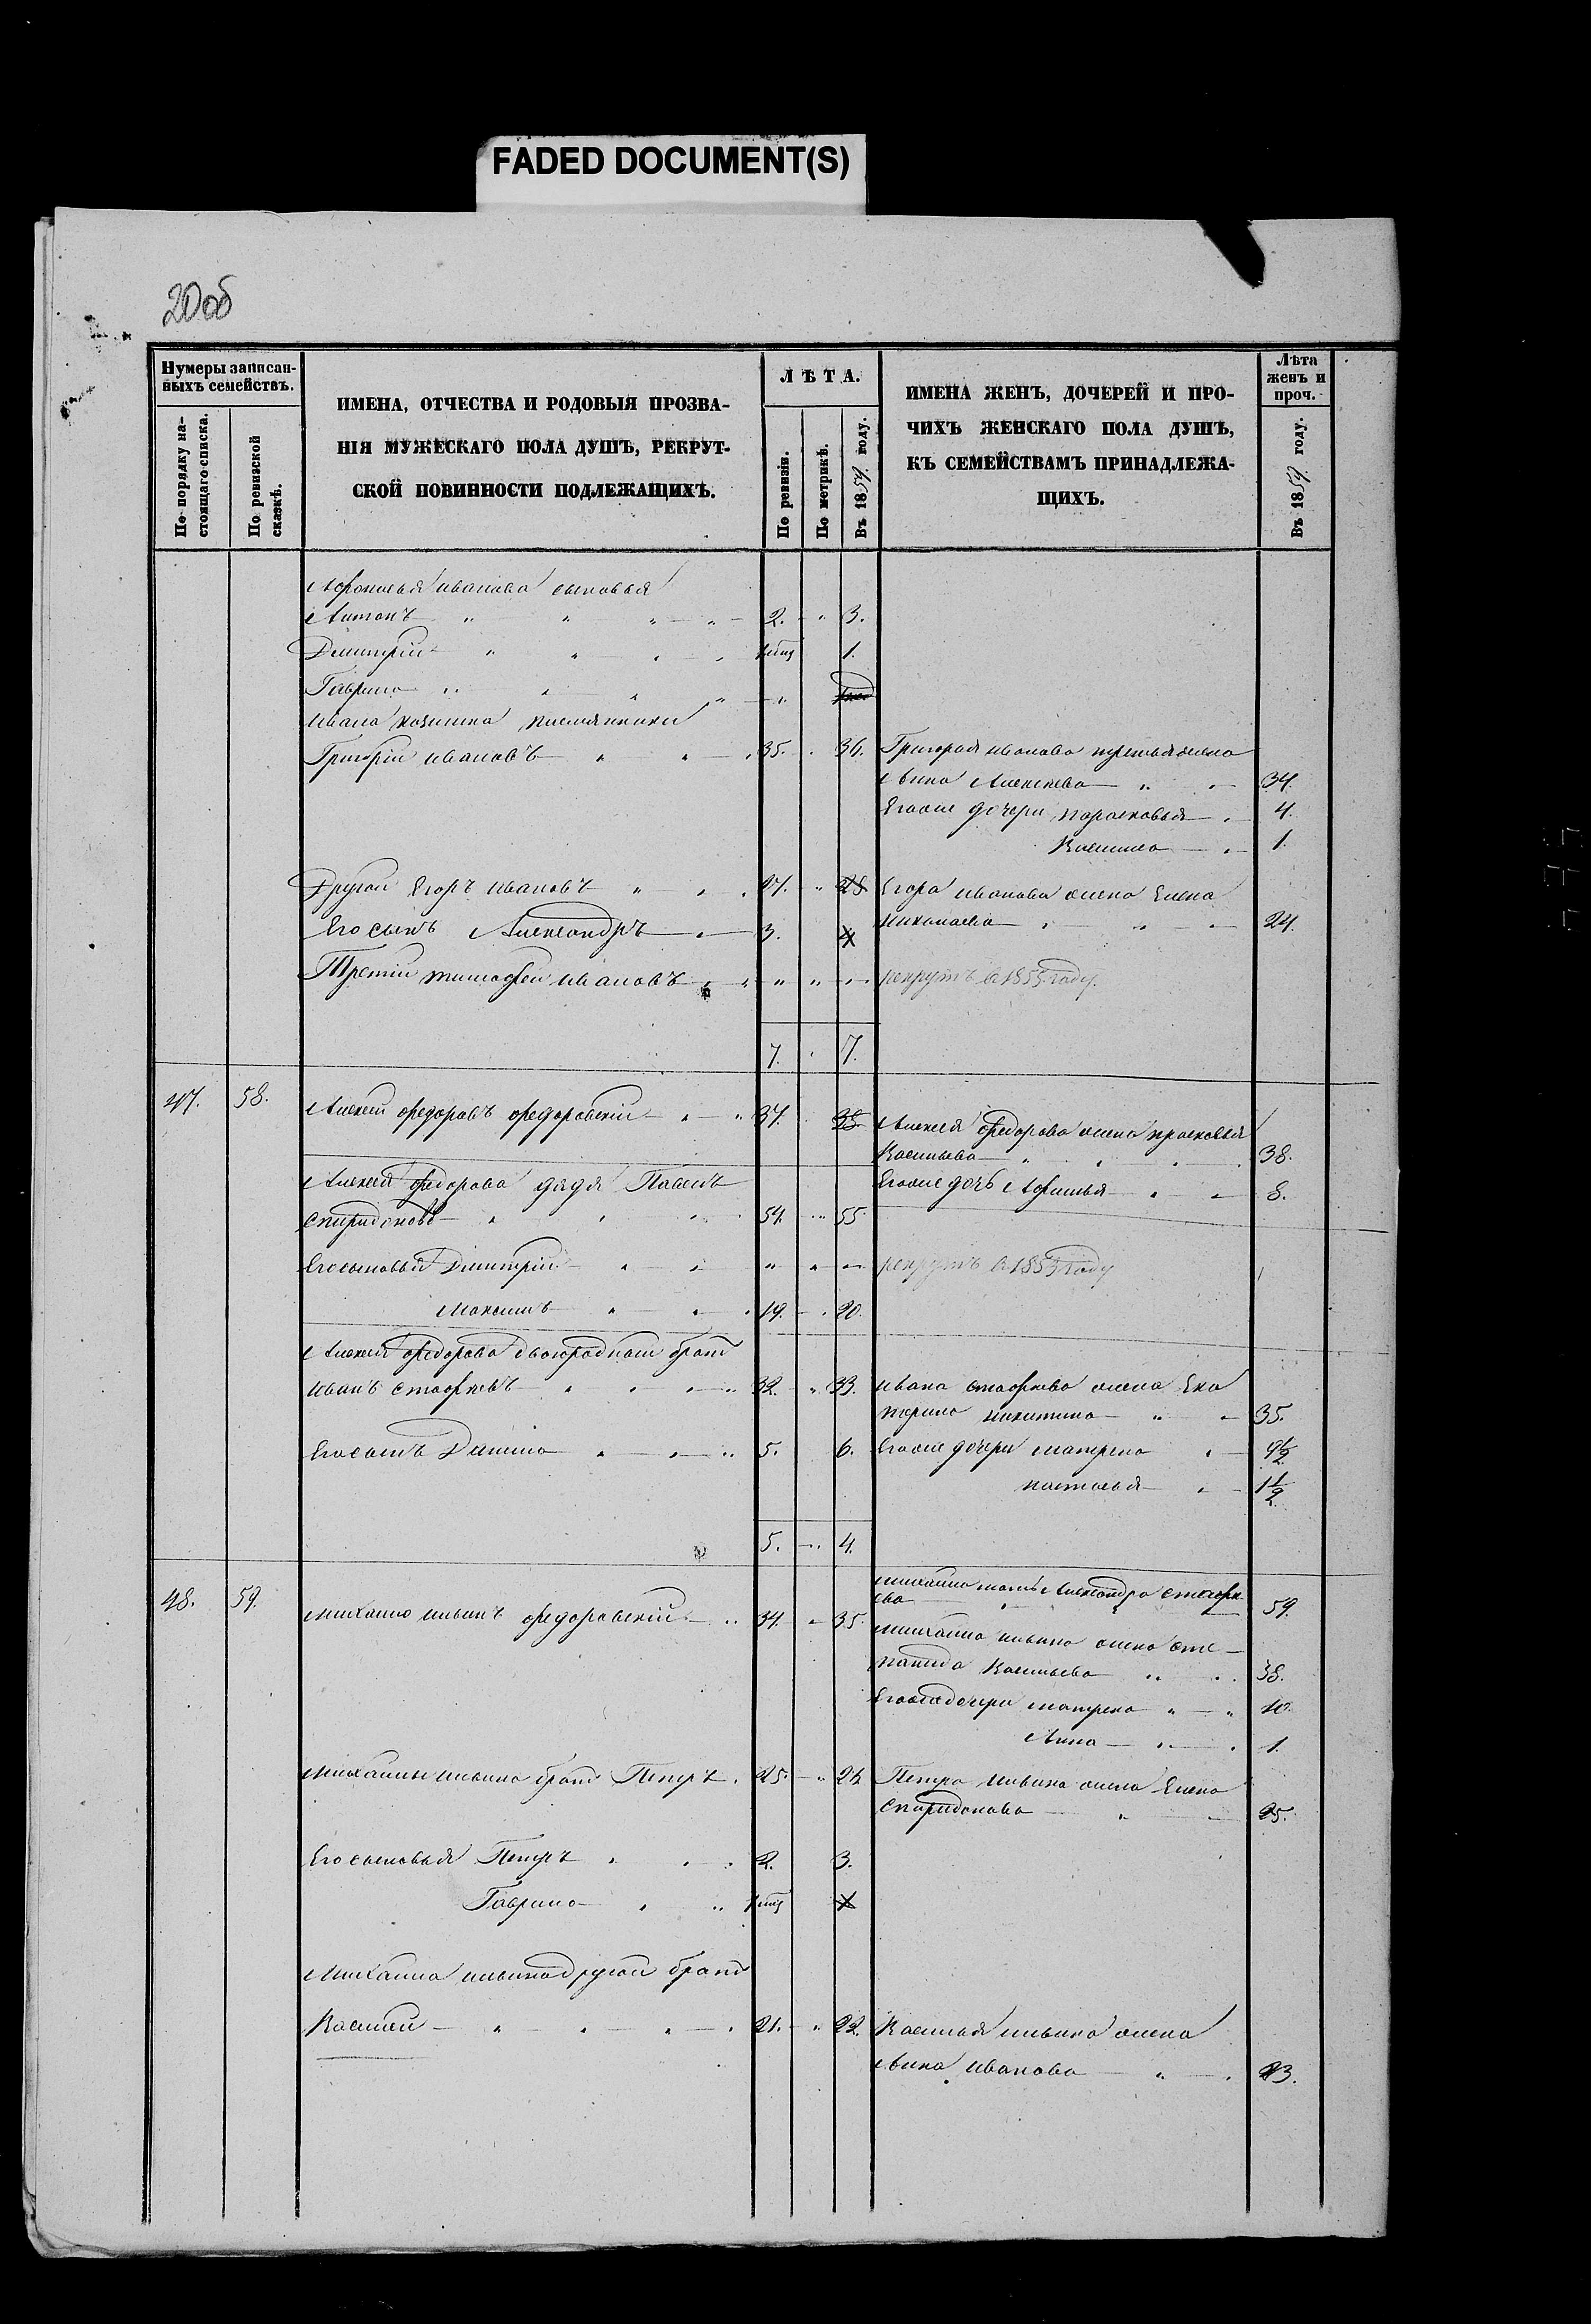 FADED DOCUMENT(S)
20об
Нумеры записан-
ныхъ семействъ.
По порядку на-
стоящаго списка.
По ревизской
сказкѣ.
ИМЕНА, ОТЧЕСТВА И РОДОВЫЯ ПРОЗВА-
НІЯ МУЖЕСКАГО ПОЛА ДУШЪ, РЕКРУТ-
СКОЙ ПОВИННОСТИ ПОДЛЕЖАЩИХЪ.
ЛѢТА.
По ревизіи.
По метрикѣ.
Въ 1859 году.
ИМЕНА ЖЕНЪ, ДОЧЕРЕЙ И ПРО-
ЧИХЪ ЖЕНСКАГО ПОЛА ДУШЪ,
КЪ СЕМЕЙСТВАМЪ ПРИНАДЛЕЖА-
ЩИХЪ.
Лѣта
женъ и
проч.
Въ 1859 году.
Афонасья иванова сыновья
Антонъ 2. 3.
Дмитрій 1.
Гаврило
Ивана козмина племянники
Григорій ивановъ 35. 36. Григорья иванова третья жена
Анна Алексеева 34.
Егоже дочери парасковья 4.
Василиса 1.
Другой Егоръ ивановъ 27. 28 Егора иванова жена Елена
Николаева 24.
Его сынъ Александръ 3. 4
Третій тимофей ивановъ рекрутъ в 1855 году.
7. 7.
47. 58. Алексей федоровъ федоровскій 37. 38. Алексея федорова жена прасковья
Васильева 38.
Егоже дочь Афимья 8.
Алексея федорова дядя Павелъ
Спиридоновъ 54. 55.
Его сыновья Дмитрій рекрутъ в 1855 году
Максимъ 19. 20.
Алексея федорова двоюродный братъ
Иванъ естафьевъ 32. 33. Ивана естафьева жена Ека
терина никитина 35.
Его сынъ Данило 5. 6. Егоже дочери матрена 9½
настасья 1½
5. 4.
48. 59. Михайло ильинъ федоровскій 34. 35. Михайла мать Александра естафь
ева 59.
Михайла ильина жена сте-
панида Васильева 38.
Егоже дочери матрена 10.
Анна 1.
Михайлы ильина братъ Петръ 25. 26 Петра ильина жена Елена
Спиридонова 25.
Его сыновья Петръ 2. 3.
Гаврило
Михайла ильина другой братъ
Василей 21. 22. Василья ильина жена
Анна Иванова 23.